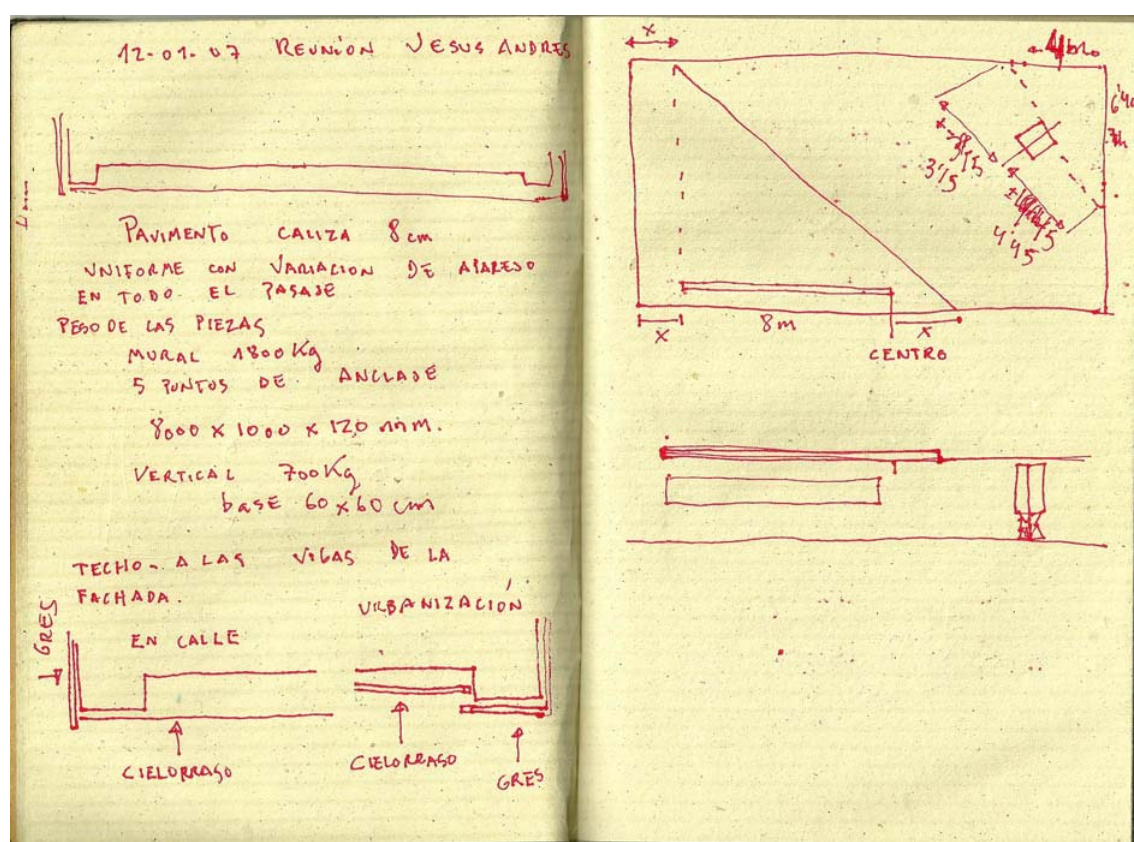 12-01-07 REUNIÓN JESUS ANDRES
PAVIMENTO CALIZA 8 cm
UNIFORME CON VARIACION DE APAREJO
EN TODO EL PASAJE
PESO DE LAS PIEZAS
MURAL 1800 Kg
5 PUNTOS DE ANCLAJE
8000 x 1000 x 120 mm.
VERTICAL 700 Kg
base 60 x 60 cm
TECHO - A LAS VIGAS DE LA
FACHADA.
URBANIZACIÓN
EN CALLE
GRES
CIELORRASO
CIELORRASO
GRES
x
6'40
3'15
4'45
x
8 m
x
CENTRO